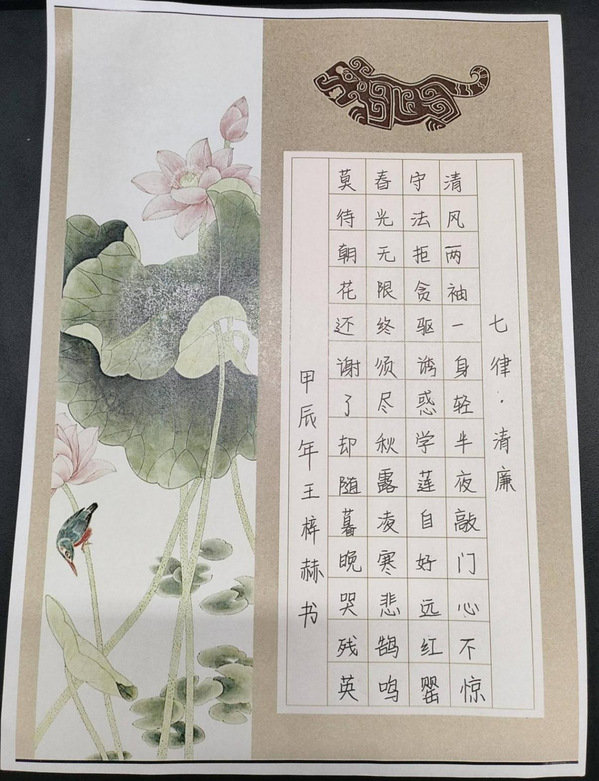 七律·清廉
清风两袖一身轻半夜敲门心不惊
守法拒贪驱诱惑学莲自好远红罂
春光无限终须尽秋露凌寒悲鹄鸣
莫待朝花还谢了却随暮晚哭残英
甲辰年王梓赫书